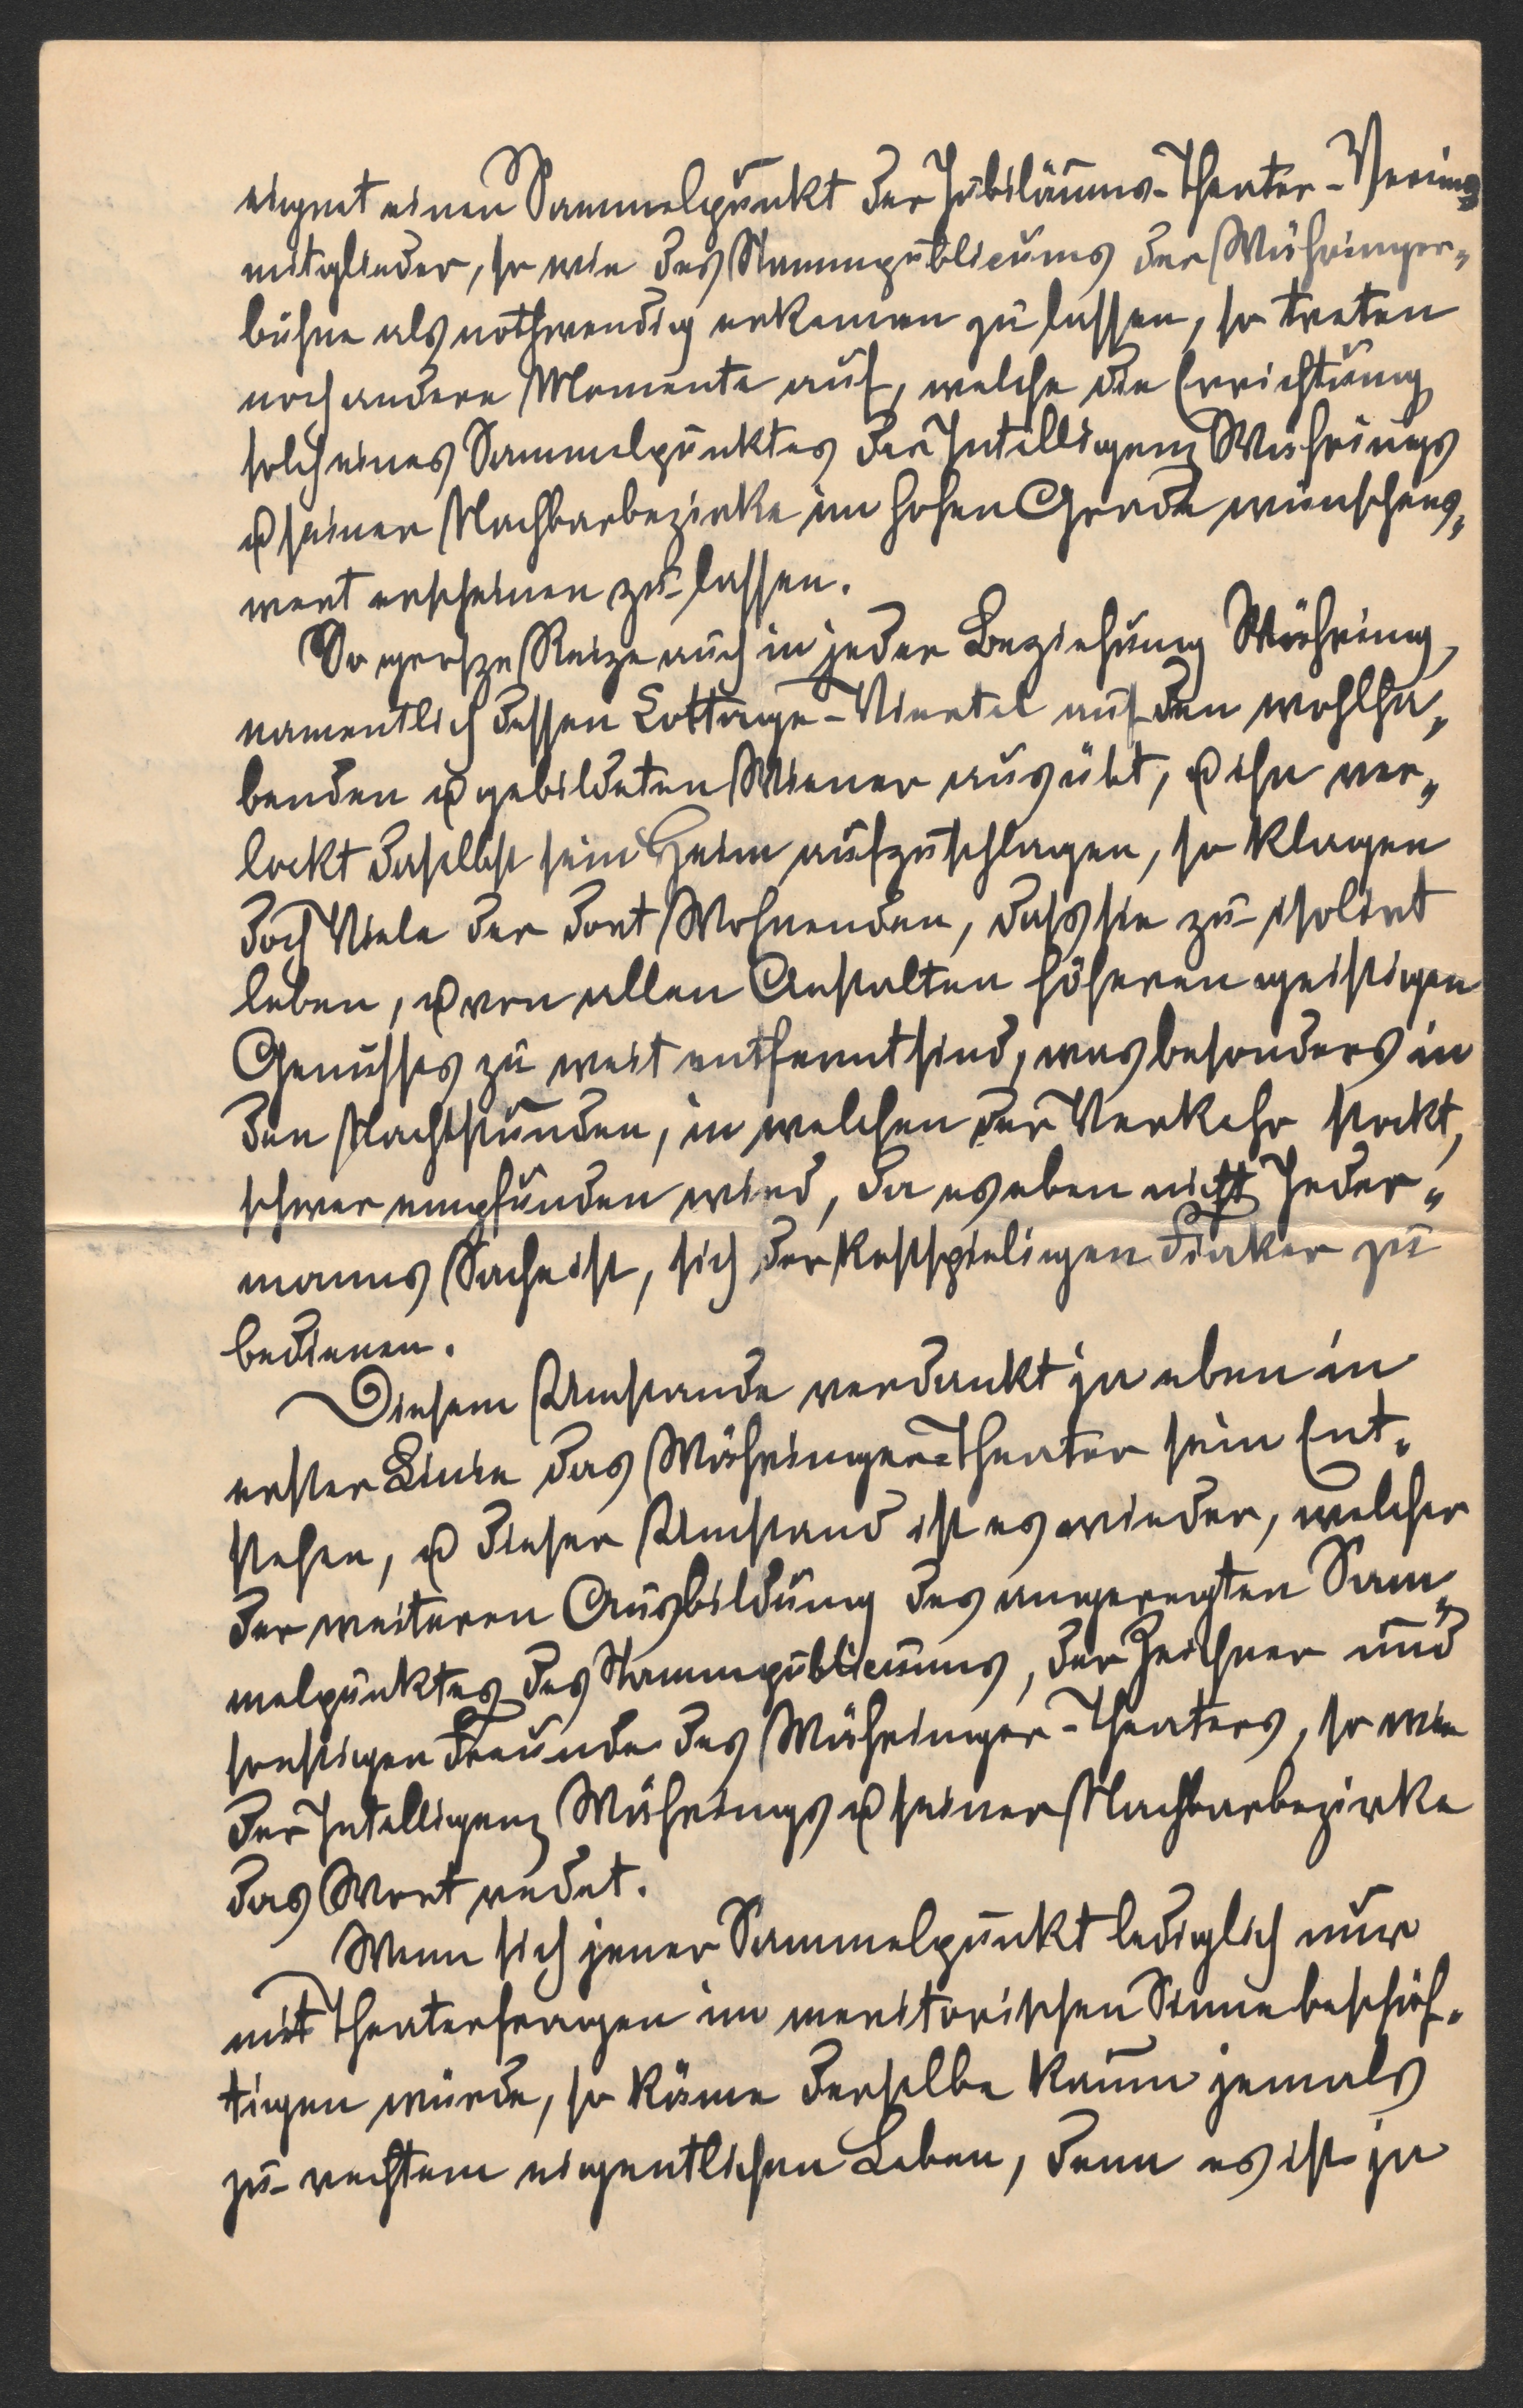 eignet einen Sammelpunkt der Jubiläums-Theater-Vereins
mitglieder, so wie des Stammpublicums der Währinger„
bühne als nothwendig erkennen zu lassen, so treten
noch andere Momente auf, welche die Errichtung
solch eines Sammelpunktes der Intelligenz Währings
u seiner Nachbarbezirke im hohen Grade wünschens„
wert erscheinen zu lassen.
So grosze Reize auch in jeder Beziehung Währing,
namentlich dessen Cottage-Viertel auf den wohlha„
benden u gebildeten Wiener ausübt, u ihn ver„
lockt daselbst sein Heim aufzuschlagen, so klagen
doch Viele der dort Wohnenden, dass sie zu isolirt
leben, u von allen Anstalten höheren geistigen
Genusses zu weit entfernt sind, was besonders in
den Nachtstunden, in welchen der Verkehr stockt,
schwer empfunden wird, da es eben nicht Jeder„
manns Sache ist, sich der kostspieligen Fiaker zu
bedienen.
Diesem Umstande verdankt ja eben in
erster Linie das Währinger-Theater sein Ent„
stehen, u dieser Umstand ist es wieder, welcher
der weiteren Ausbildung des angeregten Sam„
melpunktes des Stammpublicums, der Zeichner und
sonstigen Freunde des Währinger-Theaters, so wie
der Intelligenz Währings u seiner Nachbarbezirke
das Wort redet.
Wenn sich jener Sammelpunkt lediglich nur
mit Theaterfragen im meritorischen Sinne beschäf„
tigen würde, so käme derselbe kaum jemals
zu rechtem eigentlichen Leben, denn es ist ja